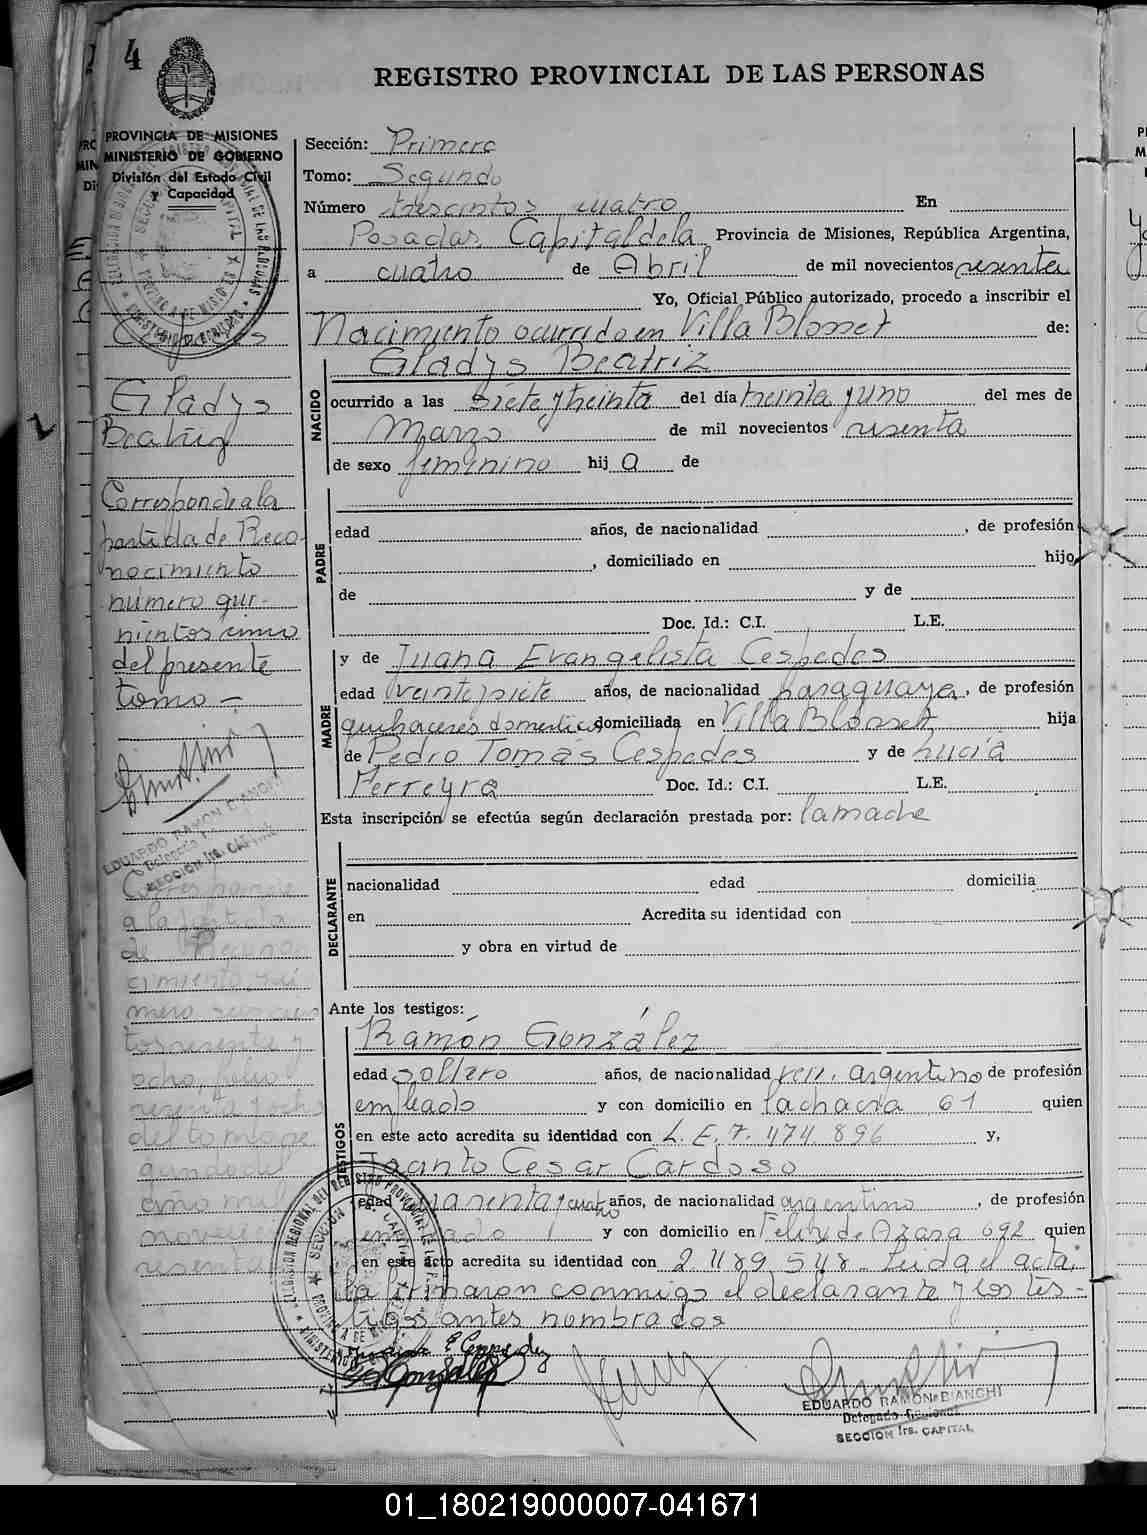 4
REGISTRO PROVINCIAL DE LAS PERSONAS
PROVINCIA DE MISIONES
MINISTERIO DE GOBIERNO
División del Estado Civil
y Capacidad
Sección: Primera
Tomo: Segundo
Número trescientos cuatro En
Posadas Capital de la Provincia de Misiones, República Argentina,
a cuatro de Abril de mil novecientos sesenta
Yo, Oficial Público autorizado, procedo a inscribir el
Nacimiento ocurrido en Villa Blosset de:
NACIDO
Gladys Beatriz
ocurrido a las siete y treinta del día treinta y uno del mes de
Marzo de mil novecientos sesenta
de sexo femenino hij a de
PADRE
edad años, de nacionalidad , de profesión
, domiciliado en hijo
de y de
Doc. Id.: C.I. L.E.
MADRE
y de Juana Evangelista Cespedes
edad veintisiete años, de nacionalidad paraguaya, de profesión
quehaceres domesticos domiciliada en Villa Blosset hija
de Pedro Tomás Cespedes y de Lucía
Ferreyra Doc. Id.: C.I. L.E.
Esta inscripción se efectúa según declaración prestada por: la madre
DECLARANTE
nacionalidad edad domicilia
en Acredita su identidad con
y obra en virtud de
Ante los testigos:
TESTIGOS
Ramón González
edad soltero años, de nacionalidad argentino de profesión
empleado y con domicilio en la chacra 61 quien
en este acto acredita su identidad con L. E. 7.474.896 y,
Jacinto Cesar Cardoso
edad cuarenta y cuatro años, de nacionalidad argentino, de profesión
empleado y con domicilio en Felix de Azara 692 quien
en este acto acredita su identidad con 2.1189.548 Leida el acta,
la firmaron conmigo el declarante y los tes-
tigos antes nombrados
EDUARDO RAMON BIANCHI
Delegado
SECCION 1ra. CAPITAL
Cespedes
Gladys
Beatriz
Corresponde a la
partida de Reco-
nocimiento
número qui-
nientos cinco
del presente
tomo.-
EDUARDO RAMON BIANCHI
Delegado
SECCION 1ra. CAPITAL
Corresponde
a la partida
de Recono
cimiento nú
mero
sesenta y
ocho, folio
sesenta y ocho
del tomo se
gundo del
año mil
novecientos
sesenta
01_180219000007-041671